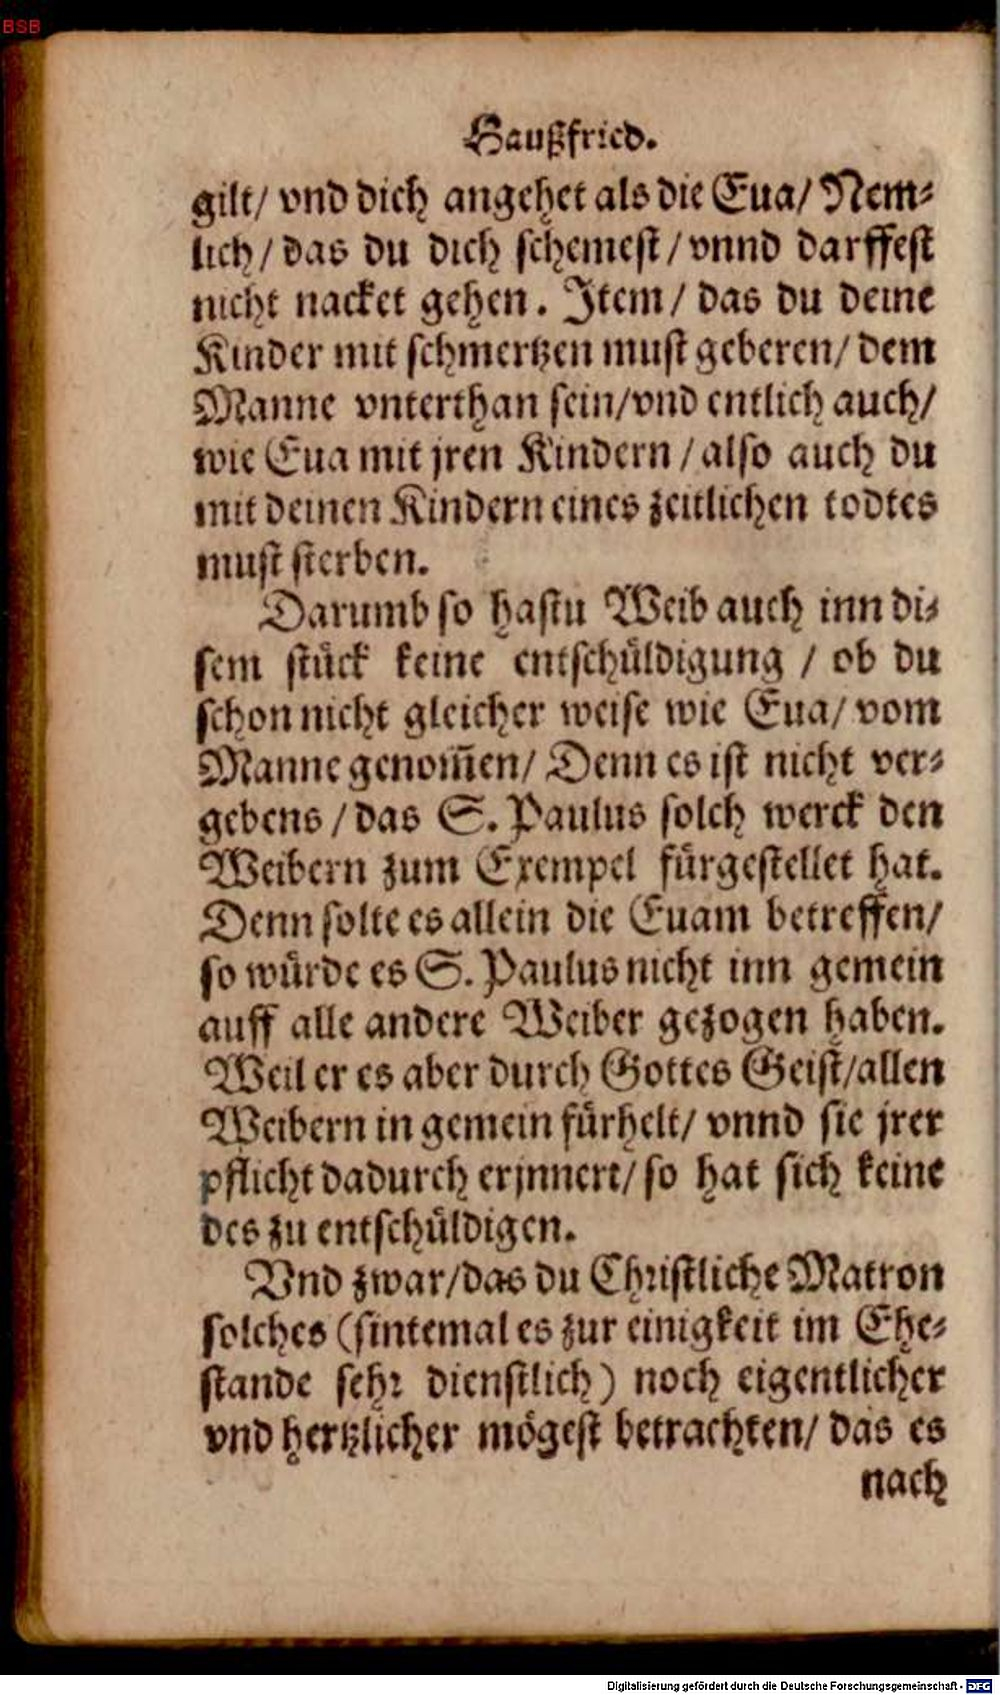 BSB
Haußfried.
gilt/ vnd dich angehet als die Eua/ Nem⸗
lich/ das du dich schemest/ vnnd darffest
nicht nacket gehen. Item/ das du deine
Kinder mit schmertzen must geberen/ dem
Manne vnterthan sein/vnd entlich auch/
wie Eua mit jren Kindern / also auch du
mit deinen Kindern eines zeitlichen todtes
must sterben.
Darumb so hastu Weib auch inn di⸗
sem stück keine entschüldigung / ob du
schon nicht gleicher weise wie Eua/ vom
Manne genom̃en/ Denn es ist nicht ver⸗
gebens / das S. Paulus solch werck den
Weibern zum Exempel fürgestellet hat.
Denn solte es allein die Euam betreffen/
so würde es S. Paulus nicht inn gemein
auff alle andere Weiber gezogen haben.
Weil er es aber durch Gottes Geist/allen
Weibern in gemein fürhelt/ vnnd sie jrer
pflicht dadurch erjnnert/ so hat sich keine
des zu entschüldigen.
Vnd zwar/das du Christliche Matron
solches (sintemal es zur einigkeit im Ehe⸗
stande sehr dienstlich) noch eigentlicher
vnd hertzlicher mögest betrachten/ das es
nach
Digitalisierung gefördert durch die Deutsche Forschungsgemeinschaft - DFG